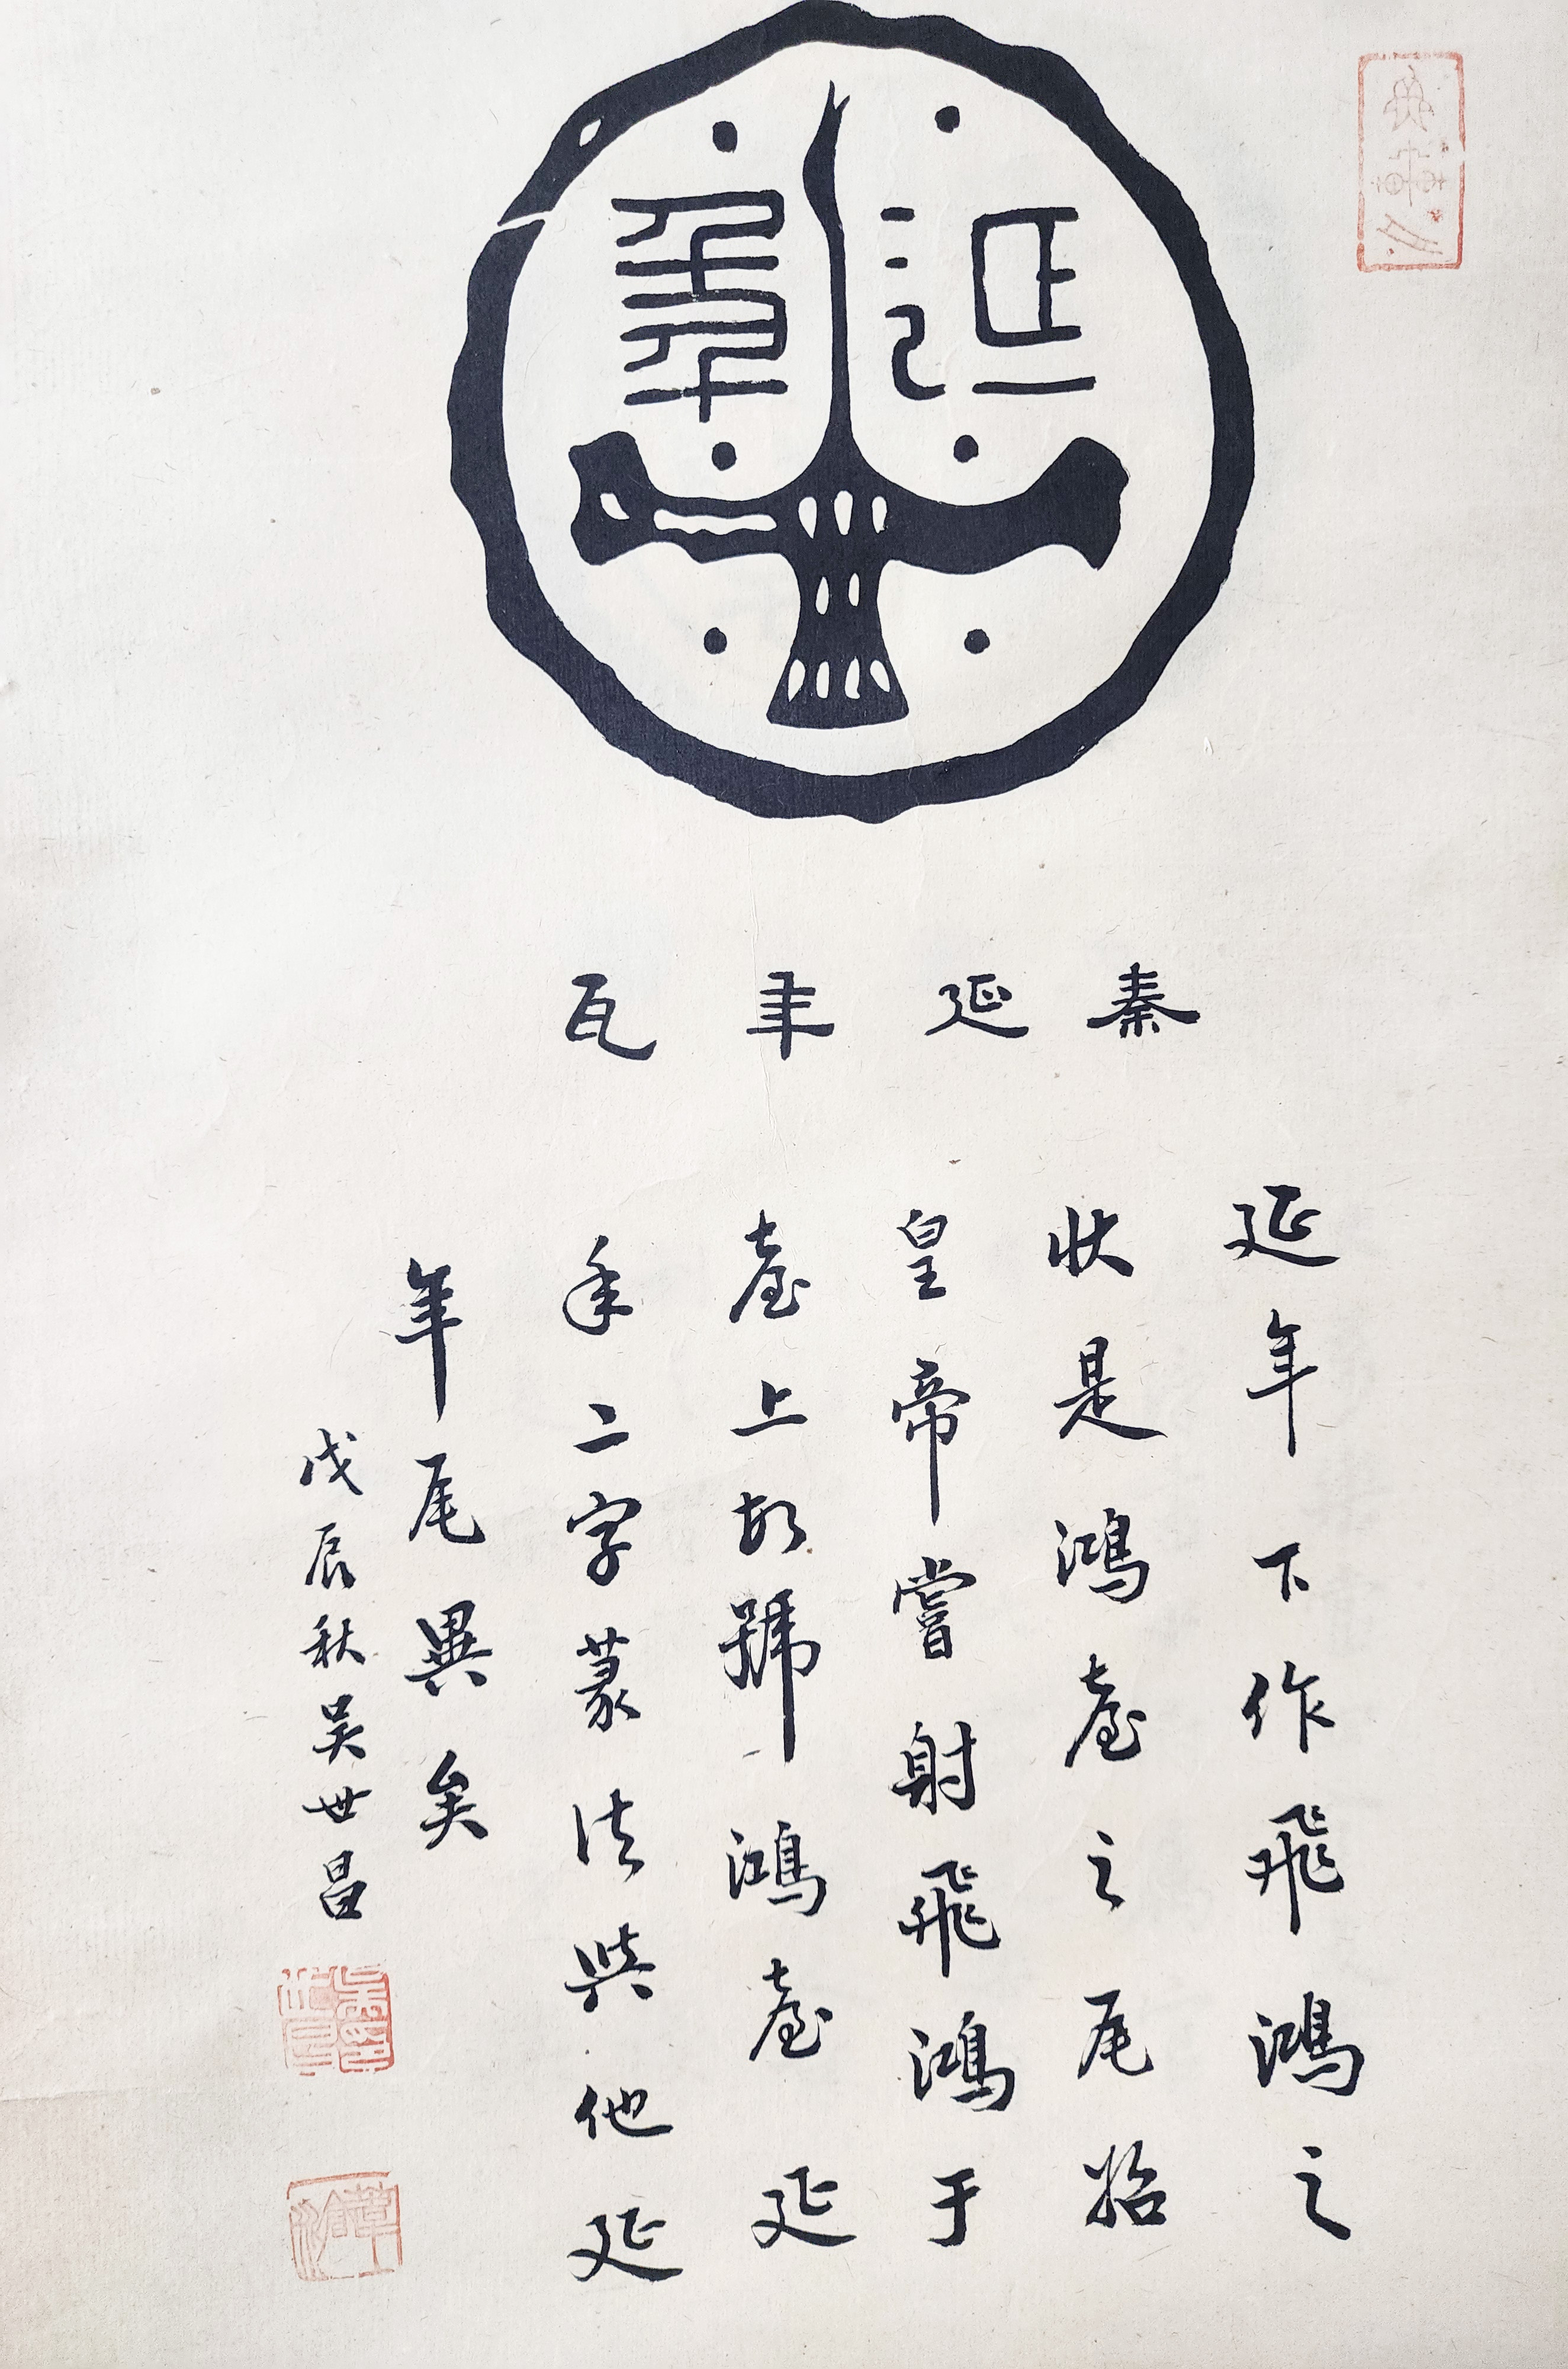 延年
秦延年瓦
延年下作飛鴻之
状是鴻臺之尾始
皇帝嘗射飛鴻于
臺上故號鴻臺延
年二字篆法與他延
年尾異矣
戊辰秋吴世昌